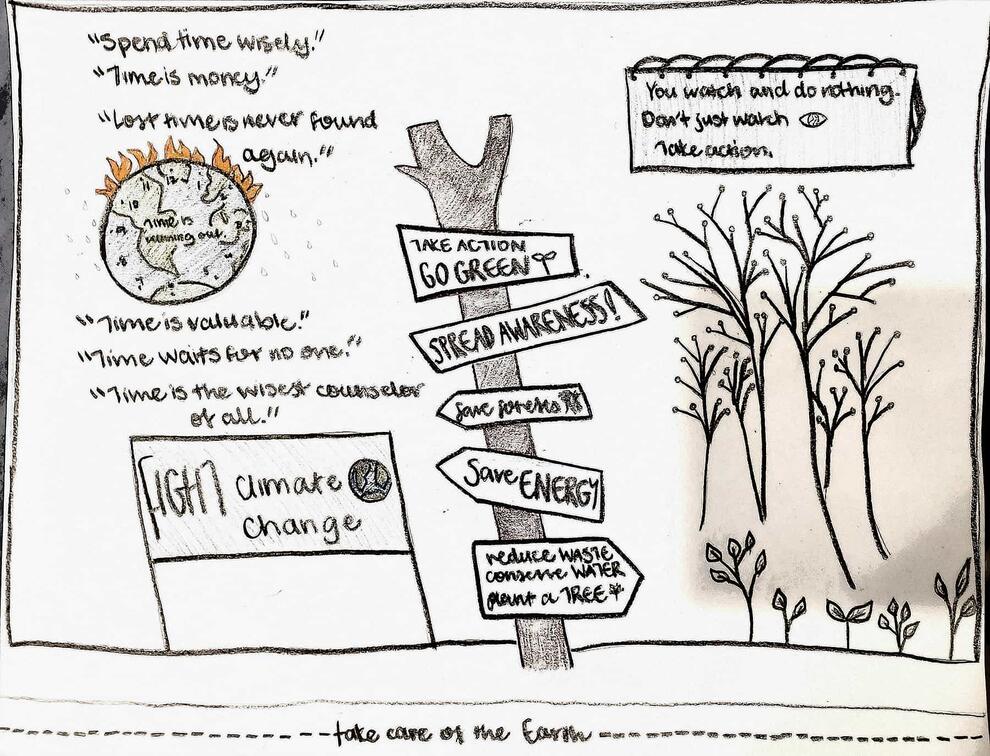 "Spend time wisely."
"Time is money."
"Lost time is never found
again."
12
1
11
10
Time is
running out.
"Time is valuable."
"Time waits for no one."
"Time is the wisest counselor
of all."
FIGHT climate
change
TAKE ACTION
GO GREEN
SPREAD AWARENESS!
Save forests
Save ENERGY
reduce WASTE
conserve WATER
plant a TREE
You watch and do nothing.
Don't just watch
Take action.
take care of the Earth